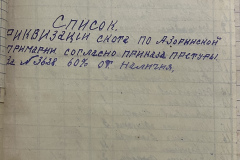 Список
Риквизации скота по Азоринской
примарии согласно приказа претуры
за №3638 60% от наличия,